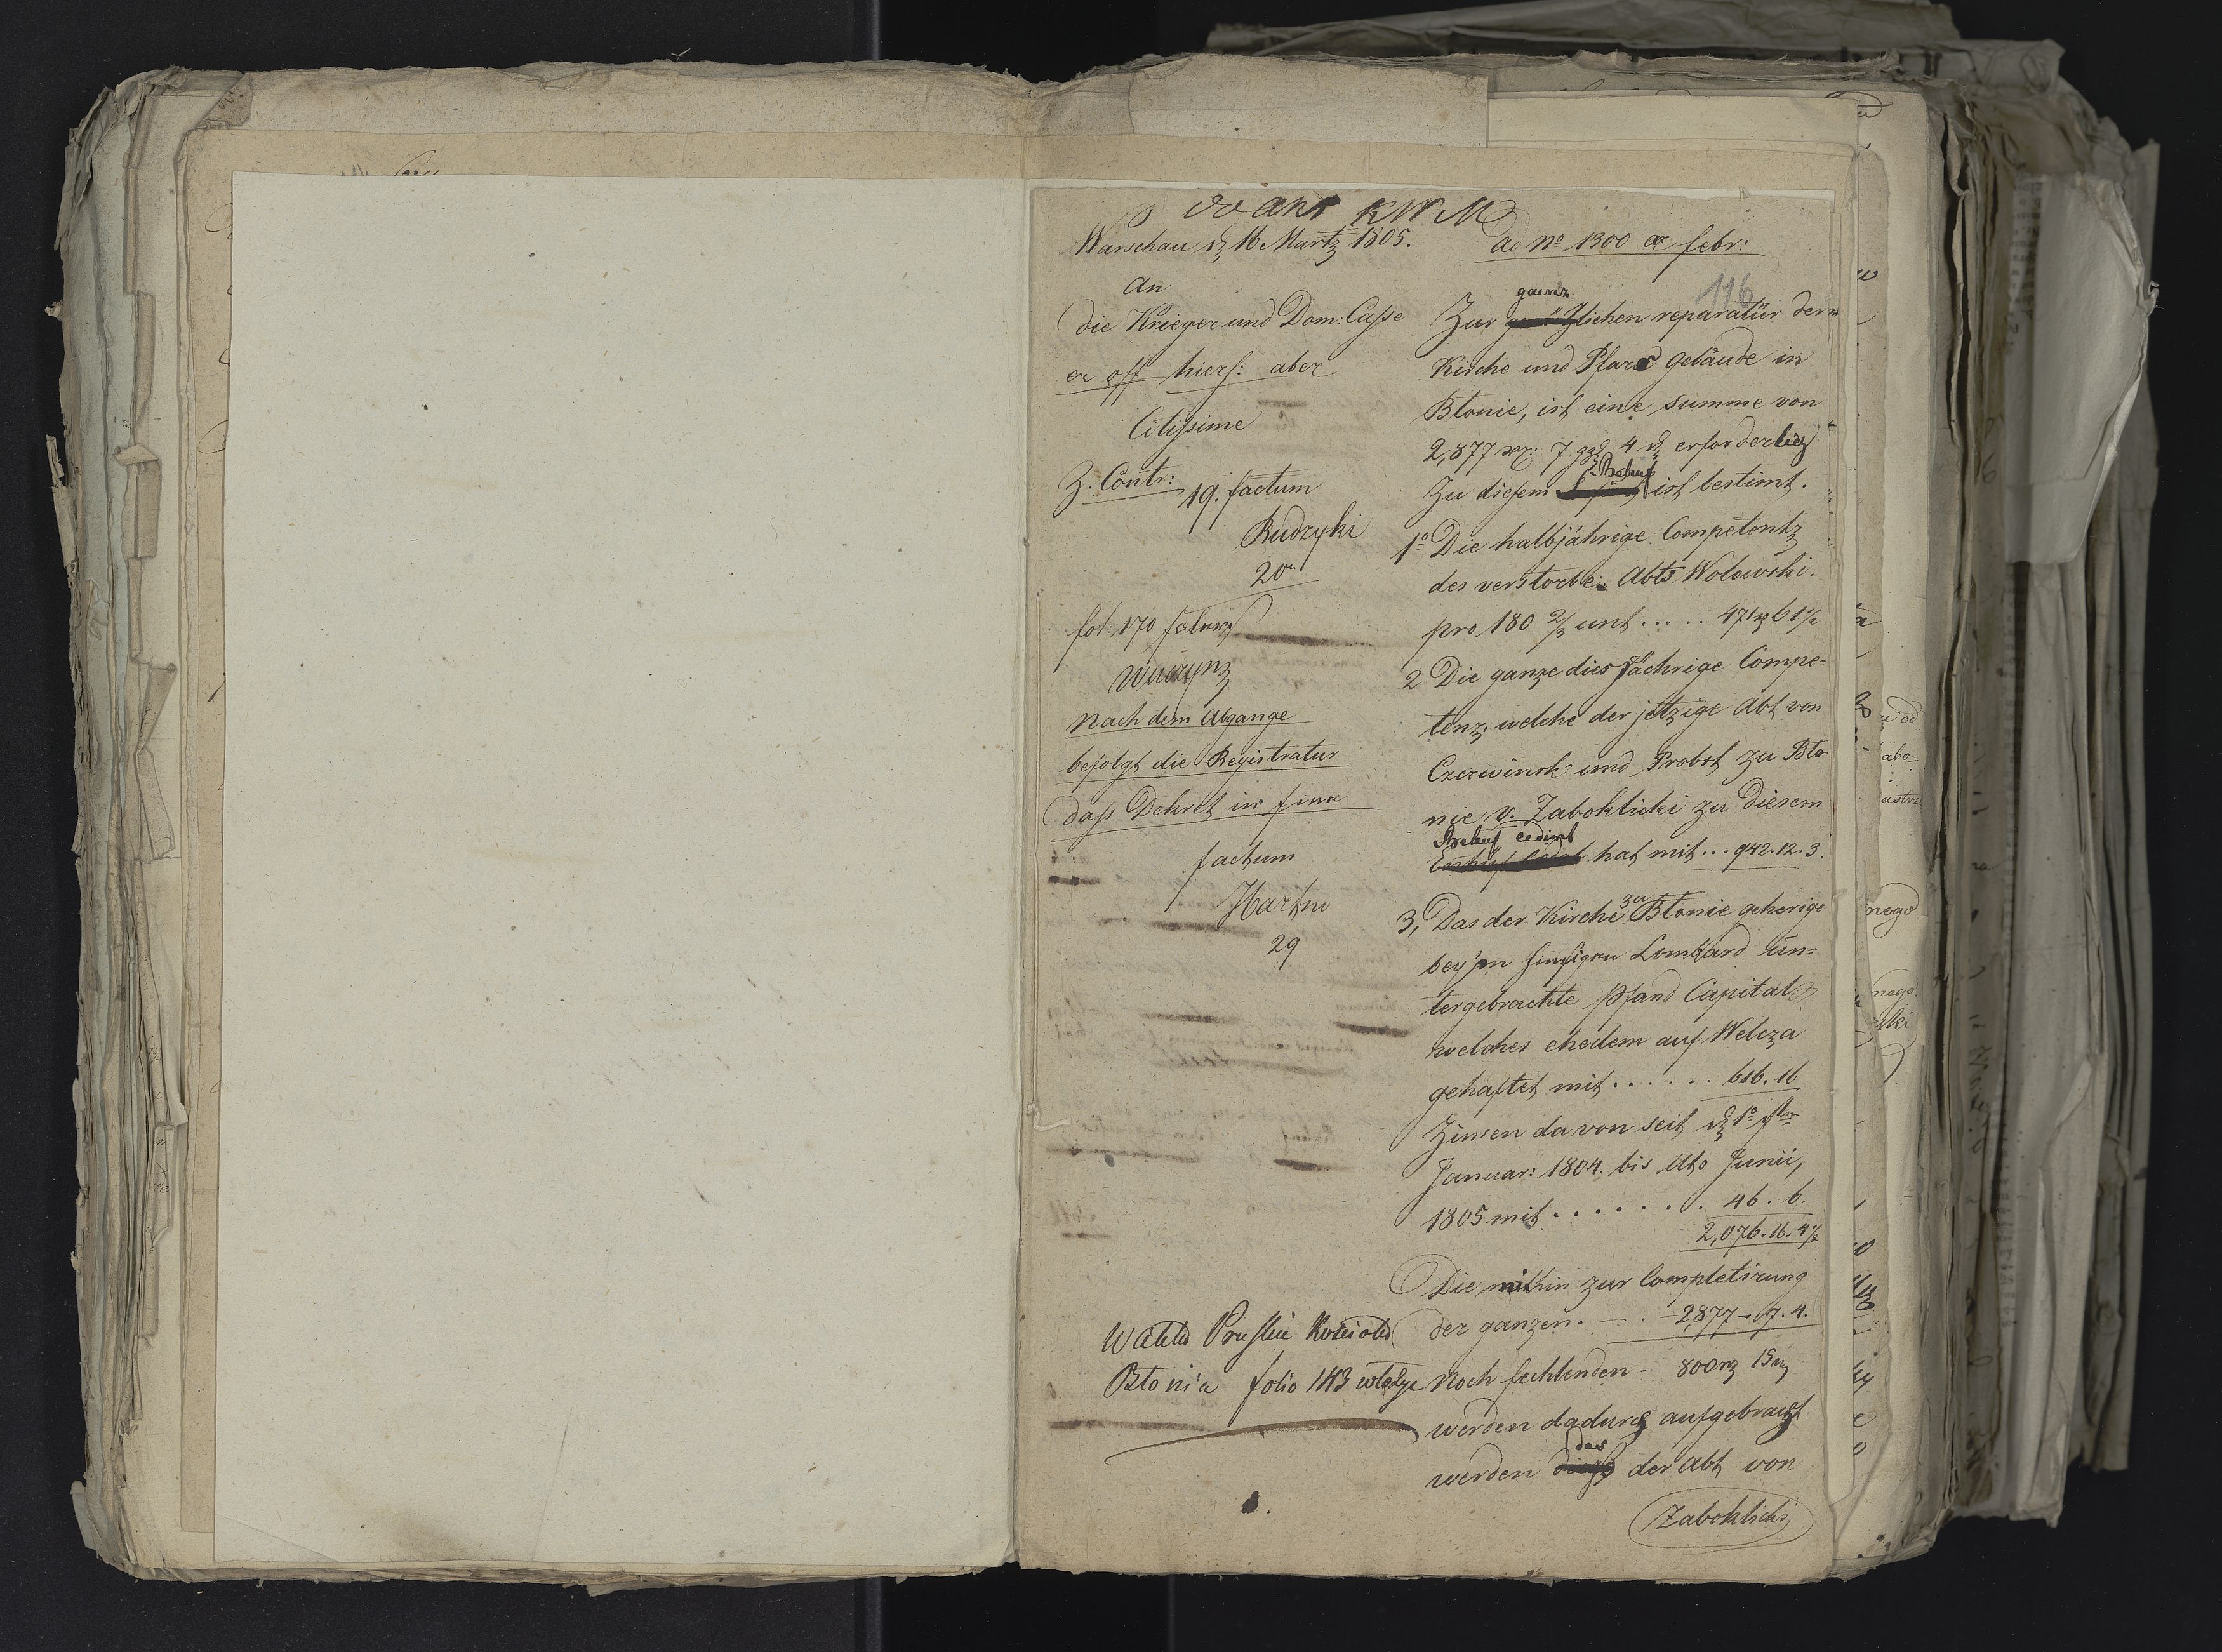 do akt KWM
Warschau d 16 Martz 1805.
ad No 1300 ex febr:
116
An
die Krieger und Dom: Casse
er off hiers: aber
Citissime
Z. Contr: 19. factum
Rudzyki
20
fol: 170
nach dem Abgange
befolgt die Registratur
dass Dekret in fine
factum
Hartm
29
Wakta Pruskie Kościoła
Błonia folio 143
gaenz
Zur glichen reparatür der
Kirche und Pfard gebäude in
Błonie, ist eine summe von
2,877 7 4 erforderlich
Behuf
Zu diesem ist bestimt.
1o Die halbjährige Competentz
des verstorbe: Abts Wolowski.
pro 180 2/3 unt ..... 471 6 1/2
2 Die ganze dies jächrige Compe=
tenz, welche der jetzige Abt von
Czerwinsk und Probst zu Bło=
nie v. Zaboklicki zu diesem
Behuf cedirt
hat mit ... 942. 12. 3.
3, Das der Kirche zu Błonie geherige
beym hiesigen Lombard ün=
tergebrachte Pfand Capital
welches ehedem auf Welcza
gehaftet mit ...... 616. 16
Zinsen davon seit d 1o
Januar: 1804. bis Ulto Junii,
1805 mit ....... 46. 6.
2,076. 16. 4 1/2
Die mithin zur Completirung
der ganzen. — . — 2,877 – 7. 4.
noch fechlenden - 800 15
werden dadurch aufgebracht
das
werden der Abt von
Zaboklicki